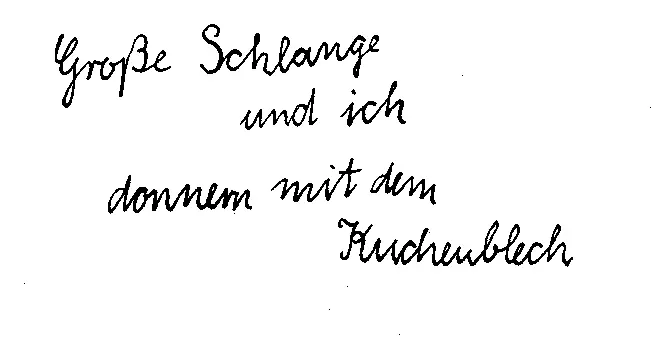 Große Schlange
und ich
donnern mit dem
Kuchenblech